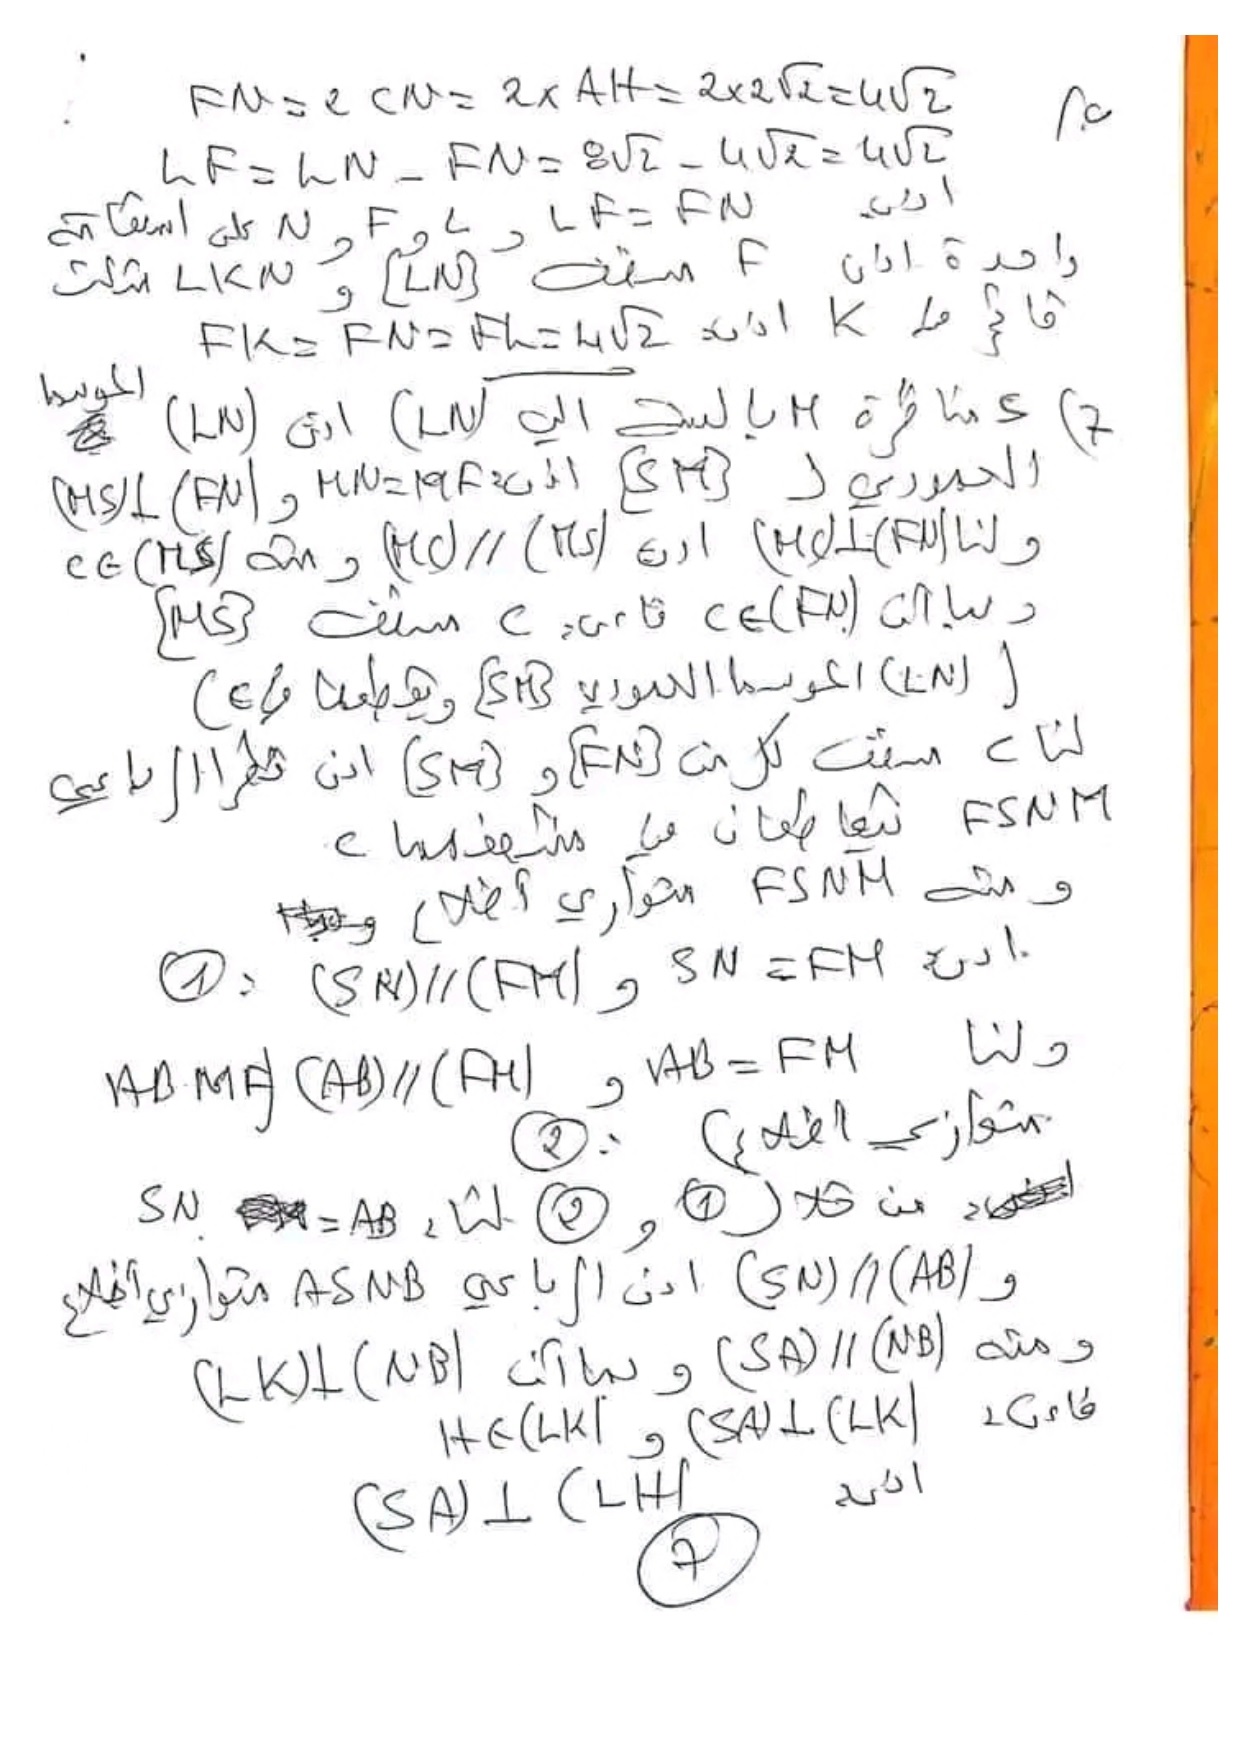 FN = 2 CN = 2 x AH = 2x2√2 = 4√2
LF = LN - FN = 8√2 - 4√2 = 4√2
اذن LF = FN و L و F و N على استقامة
واحدة اذن F منتصف [LN] و LKN مثلث
قائم في K اذن FK = FN = FL = 4√2
7) S مماثلة M بالنسبة الى (LN) اذن (LN) الموسط
العمودي ل [SM] اذن MN = MF و (MS)⊥(FN)
ولنا (MC)⊥(FN) اذن (MC)//(MS) ومنه C∈(MS)
وبما أن C∈(FN) فان C منتصف [MS]
((LN) الموسط العمودي [SM] ويقطعها في C)
لنا C منتصف كل من [FN] و [SM] اذن قطرا الرباعي
FSNM يتقاطعان في منتصفهما C
ومنه FSNM متوازي أضلاع
اذن SN = FM و (SN)//(FM) : ①
ولنا AB = FM و (AB)//(FM) ABMF
متوازي اضلاع : ②
من خلال ① و ② لنا SN = AB
و (SN)//(AB) اذن الرباعي ASNB متوازي أضلاع
ومنه (SA)//(NB) وبما أن (LK)⊥(NB)
فان (SA)⊥(LK) و H∈(LK)
اذن (SA)⊥(LH)
7